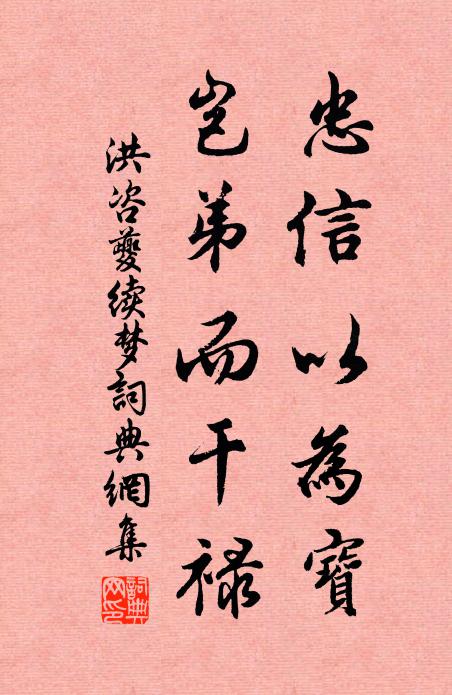 忠信以為寶
岂弟而干禄
洪咨夔续梦詞典網集
詞典網印